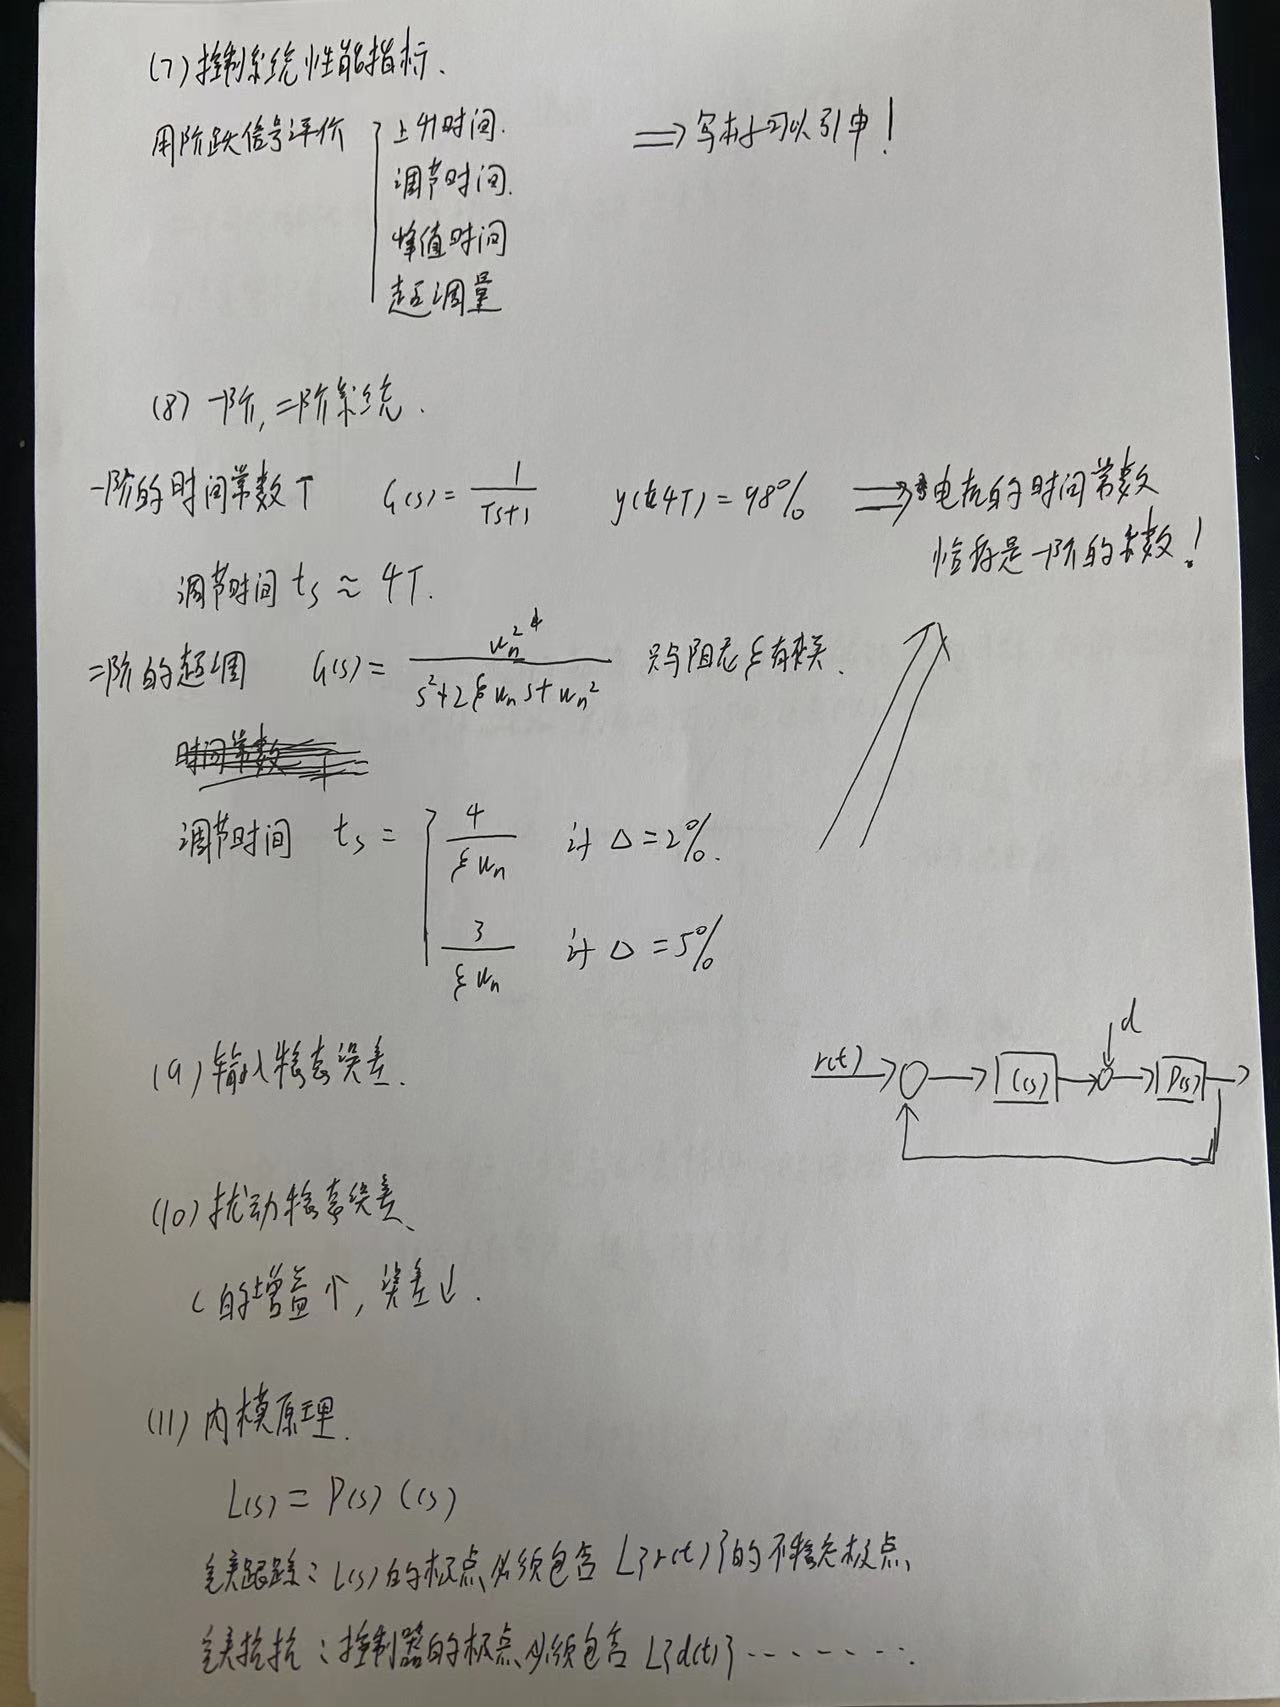 (7) 控制系统性能指标.
用阶跃信号评价 { 上升时间. ⟹ 写本子可以引申!
调节时间.
峰值时间
超调量
(8) 一阶,二阶系统.
一阶的时间常数T G(s)= 1/(Ts+1) y(4T)=98% ⟹ 电机的时间常数
恰好是一阶的常数!
调节时间 ts ≈ 4T.
二阶的超调 G(s)= ωn²/(s²+2ξωns+ωn²) 只与阻尼ξ有关.
时间常数
调节时间 ts = { 4/(ξωn) 计 Δ=2%.
3/(ξωn) 计 Δ=5%
(9) 输入稳态误差.
r(t) C(s) d P(s)
(10) 扰动稳态误差、
C的增益↑, 误差↓.
(11) 内模原理.
L(s) = P(s) C(s)
跟踪: L(s)的极点必须包含 L{r(t)}的不稳定极点
: 控制器的极点必须包含 L{d(t)} ........